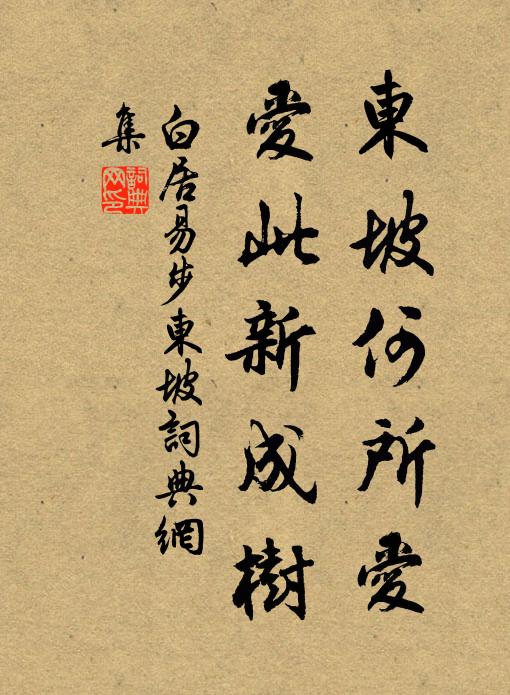 東坡何所愛
愛此新成樹
白居易步東坡詞典網
集
詞典
网印